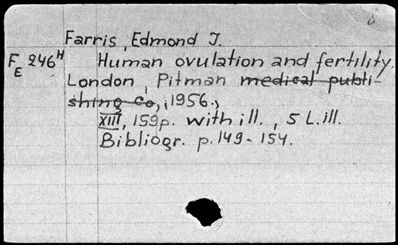 Farris, Edmond J.
F 246H Human ovulation and fertility.
E London, Pitman medical publi-
shing co, 1956.,
XIII, 159p. with ill., 5 L.ill.
Bibliogr. p.149-154.